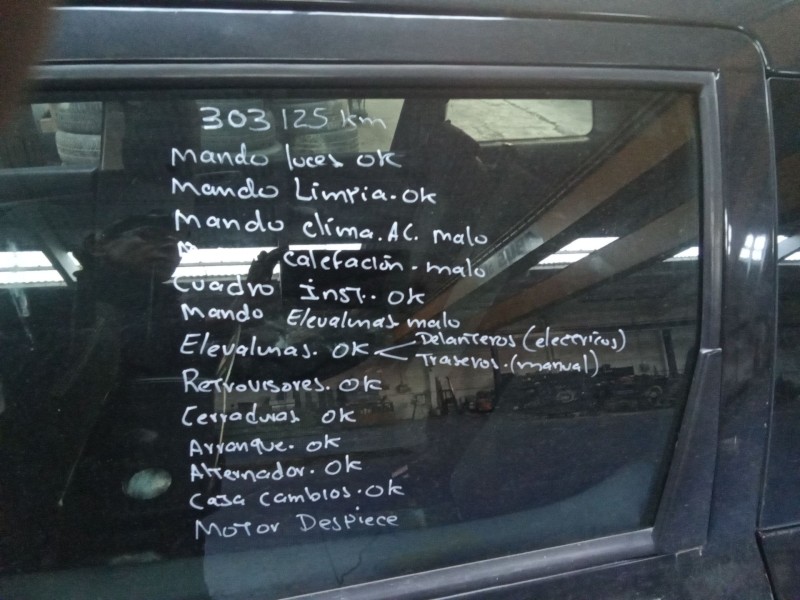 303125 km
Mando luces ok
Mando Limpia. ok
Mando clima. AC. malo
calefación. malo
Cuadro inst.. ok
Mando Elevalunas malo
Elevalunas. ok < Delanteros (electricos)
Traseros. (manual)
Retrovisores. ok
Cerraduras ok
Arranque. ok
Alternador. ok
Casa cambios. ok
Motor Despiece